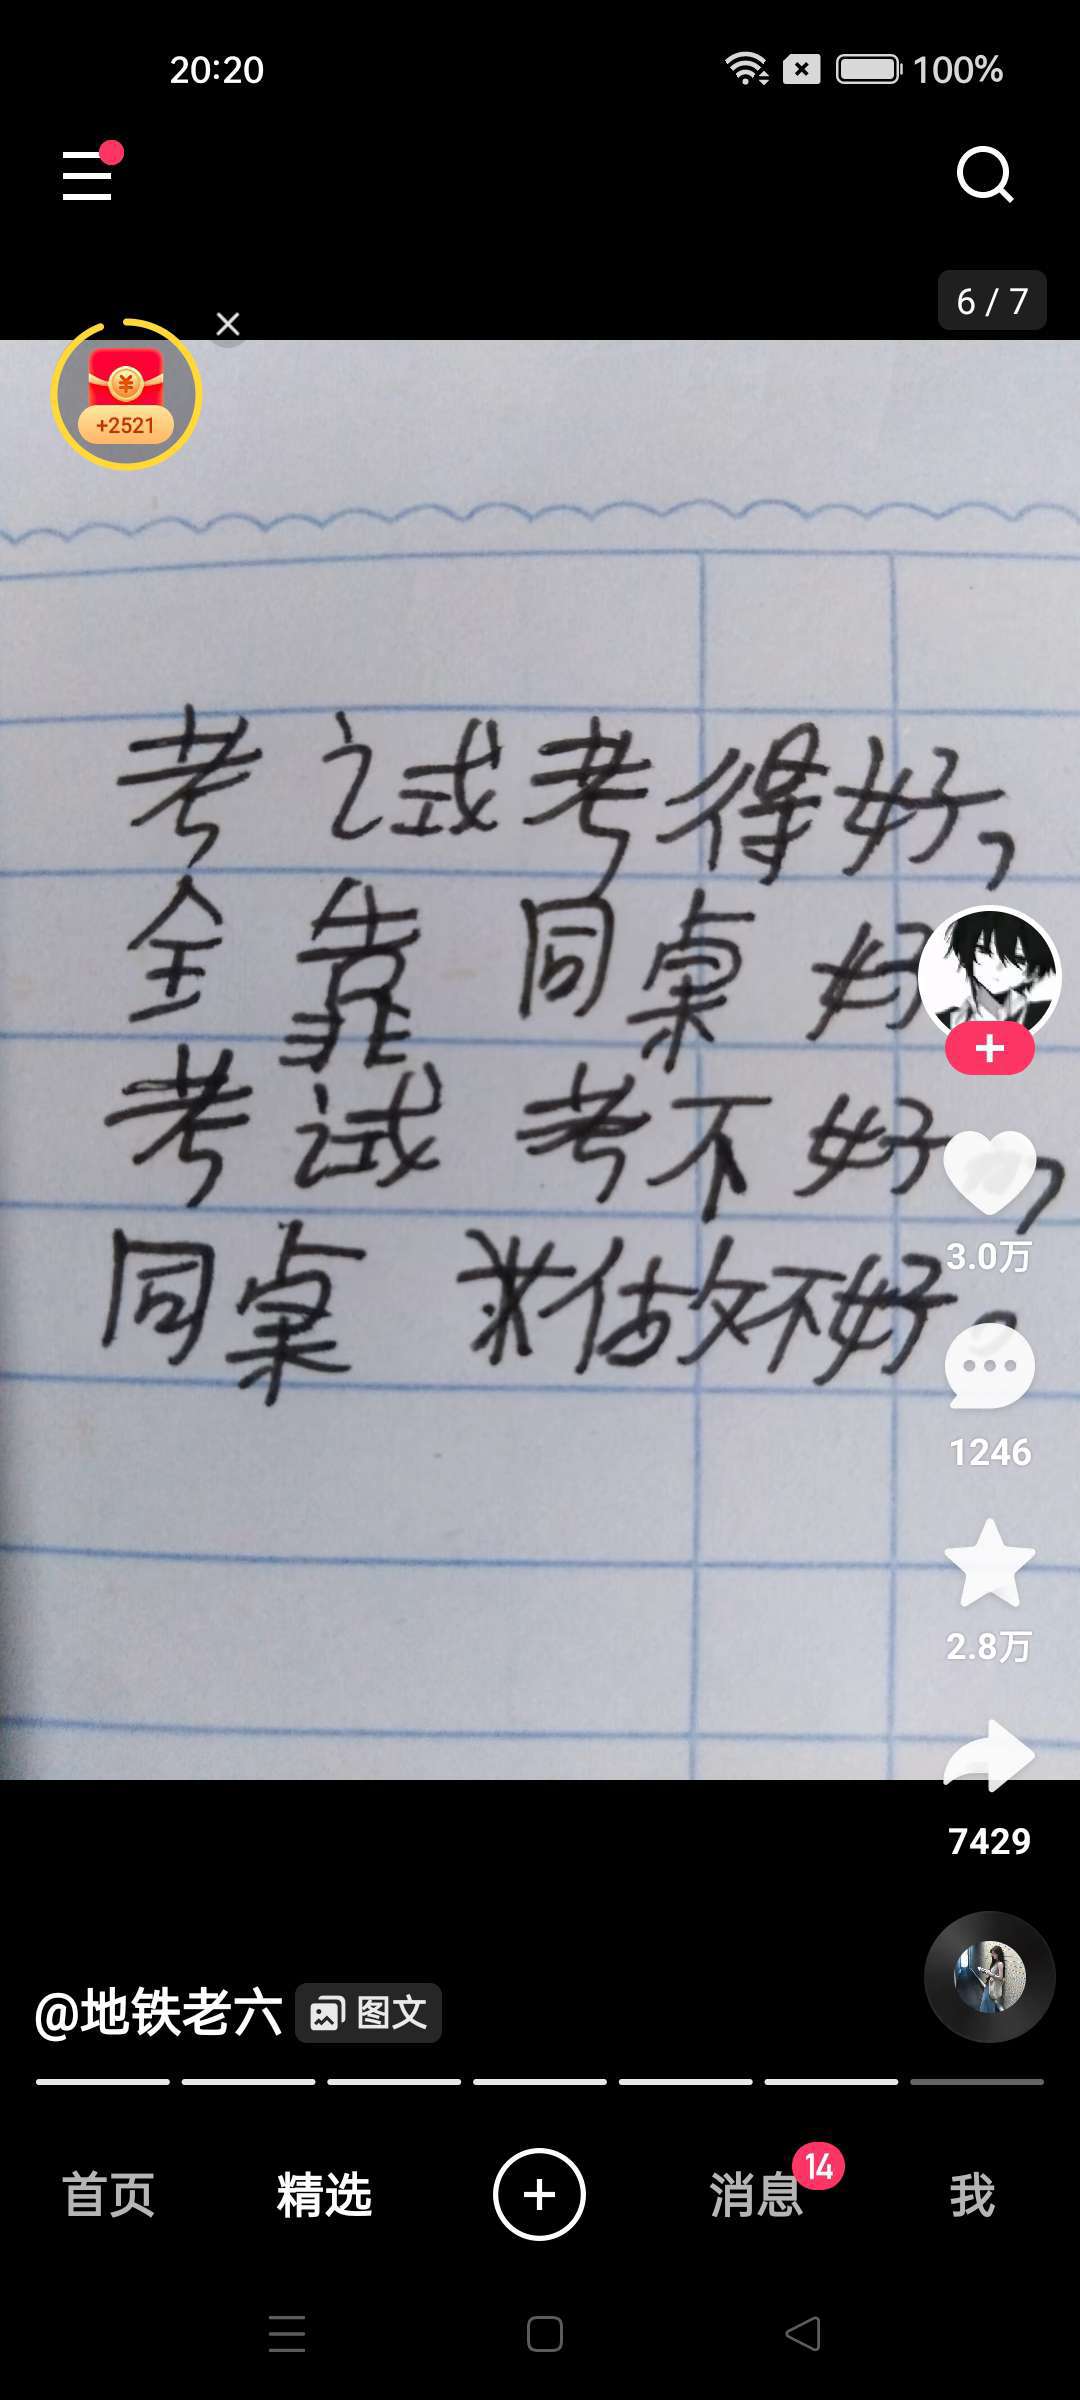 20:20
100%
6 / 7
+2521
考试考得好,
全靠同桌好
考试考不好,
同桌 做不好。
3.0万
1246
2.8万
7429
@地铁老六
图文
首页
精选
消息
14
我